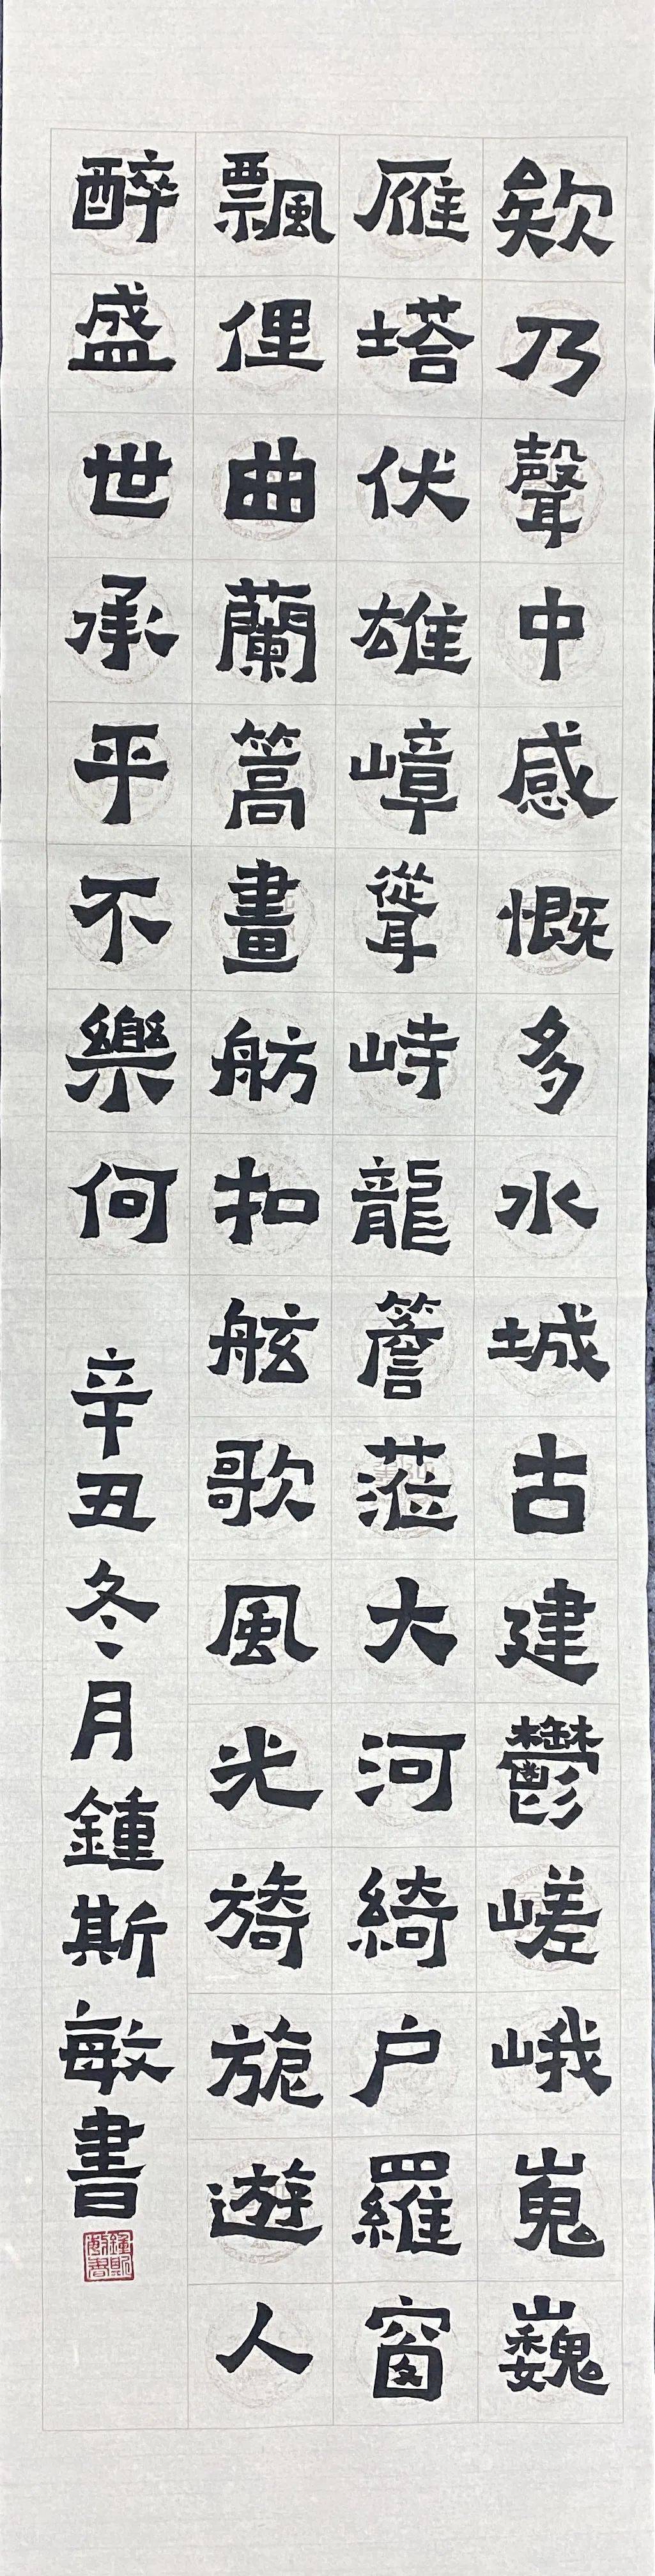 欸乃聲中感慨多水城古建鬱嵯峨嵬巍
雁塔伏雄嶂聳峙龍簷蒞大河綺户羅窗
飄俚曲蘭篙畫舫扣舷歌風光旖旎遊人
醉盛世承平不樂何
辛丑冬月鍾斯敏書